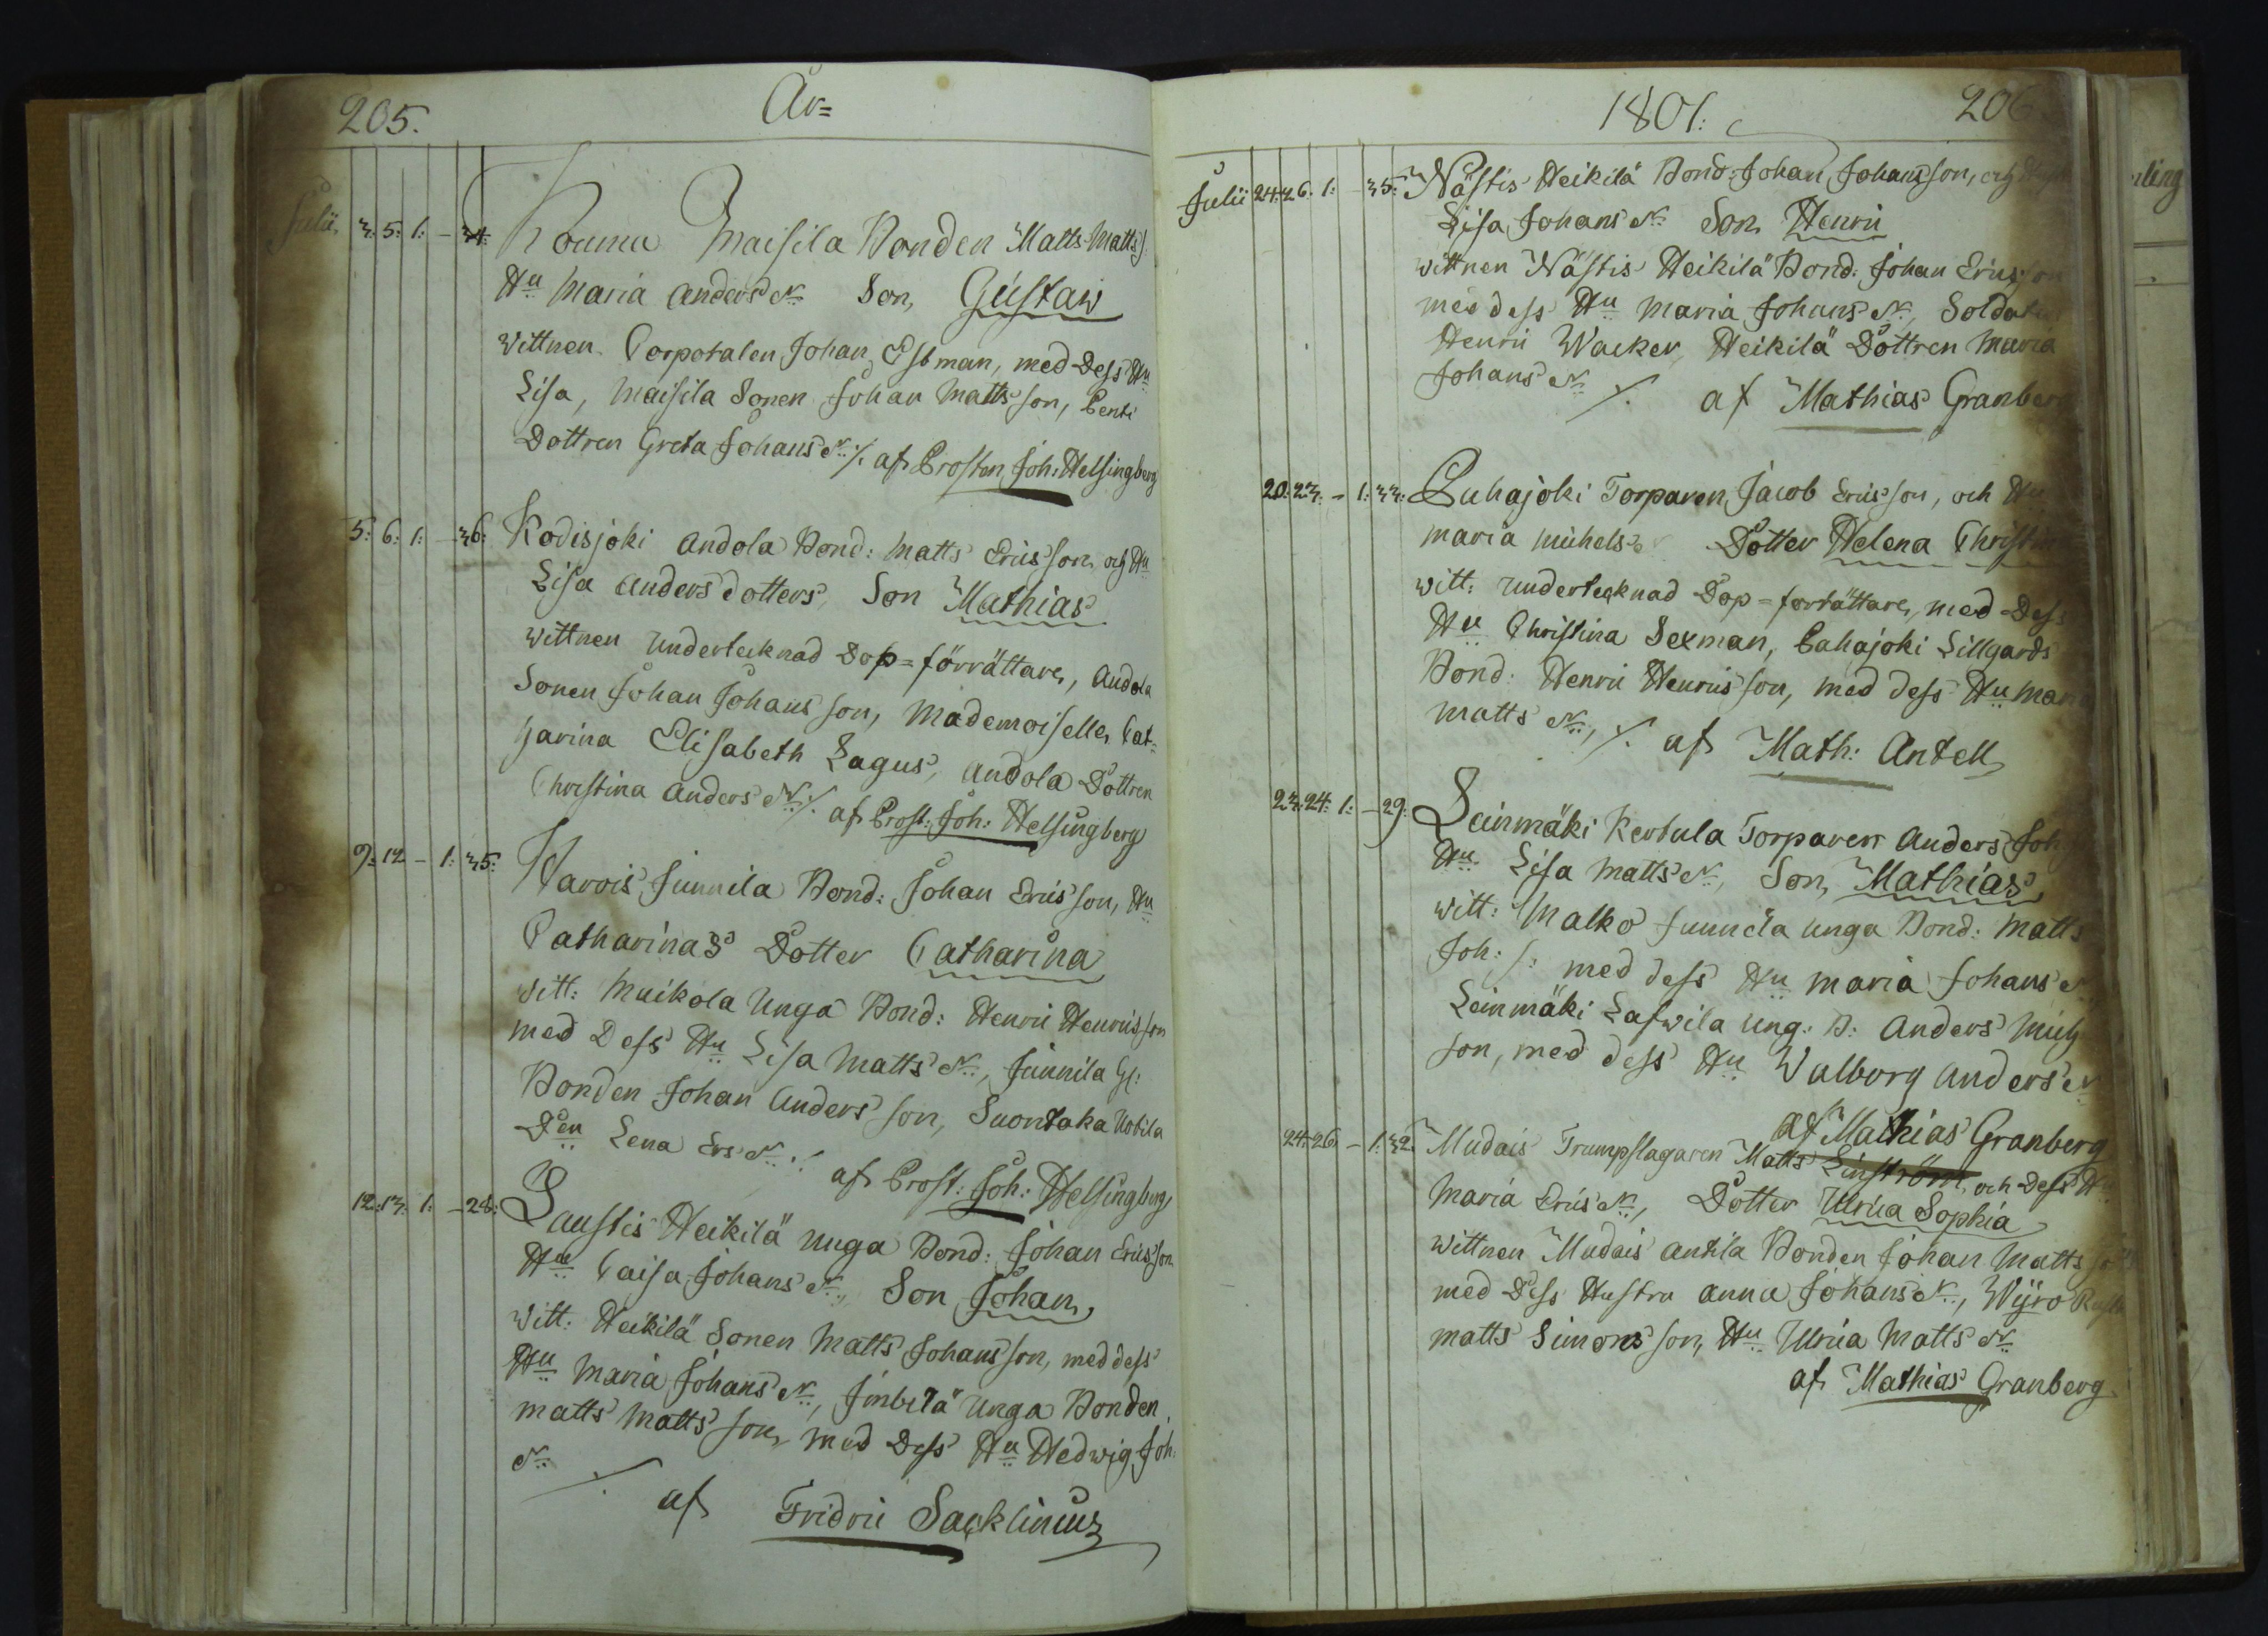 205. År=
Julii 3. 5. 1. - 34. Kouma Maisila Bonden Matts Matts
Hu Maria Anders Son, Gustaw
Wittnen Corporalen Johan Estman, med Dess Hu
Lisa, Maisila Sonen Johan Mattsson, Penti
Dottren Greta Johans ./. af Prosten Joh: Helsingberg
5: 6: 1: - 36: Kodisjoki Andola Bond: Matts Ericsson, och Hu
Lisa Andersdotters, Son Mathias
Wittnen Undertecknad Dop=förrättare, Andola
Sonen Johan Johansson, Mademoiselle Cat=
harina Elisabeth Lagus, Andola Dottren
Christina Anders ./. af Prost: Joh: Helsingberg
9: 12 - 1: 35: Warois Junnila Bond: Johan Ericsson, Hu
Catharinas Dotter Catharina
Witt: Muikola Unga Bond: Henric Henricsson
med Dess Hu Lisa Matts, Junnila Gl:
Bonden Johan Andersson, Suontaka Uotila
Den Lena Ers
af Prost: Joh: Helsingberg
12: 13: 1: - 28: Laustis Heikilä unga Bond: Johan Ericsson
Hu Caisa Johans, Son Johan,
Witt: Heikilä Sonen Matts Johansson, med dess
Hu Maria Johans, unga Bonden
Matts Mattsson, med Dess Hu Hedwig Joh:
./. af Fridric Sacklinius
1801: 206
Julii 24: 26. 1: - 35: Nästis Heikilä Bond: Johan Johansson, och
Lisa Johans Son, Henric
Wittnen Nästis Heikilä Bond: Johan Ericsson
med dess Hu Maria Johans, Soldaten
Henric Wacker, Heikilä Dottren Maria
Johans ./. af Mathias Granberg
20: 23: - 1: 33: Luhajoki Torparen Jacob Ericsson, och Hu
Maria Michels Dotter Helena Christina
Witt: Undertecknad Dop=förrättare, med Dess
Hu Christina Sexman, Lahajoki Sillgårds
Bond: Henric Henricsson, med dess Hu Maria
Matts, ./. af Math: Antell
23: 24: 1: - 29: Leinmäki Kertula Torparen Anders Joh
Hu Lisa Matts, Son, Mathias
Witt: Malko Junnila unga Bond: Matts
Joh: s: med dess Hu Maria Johans
Leinmäki Laswila Ung: B: Anders Mich
son, med dess Hu Walborg Anders
af Mathias Granberg
24: 26 - 1: 32 Mudais Trumpslagaren Matts och Dess Hu
Maria Erics, Dotter Ulrica Sophia
Wittnen Mudais Antila Bonden Johan Mattsson
med Dess Hustru Anna Johans, Wijro
Matts Simonsson, Hu Ulrica Matts
af Mathias Granberg